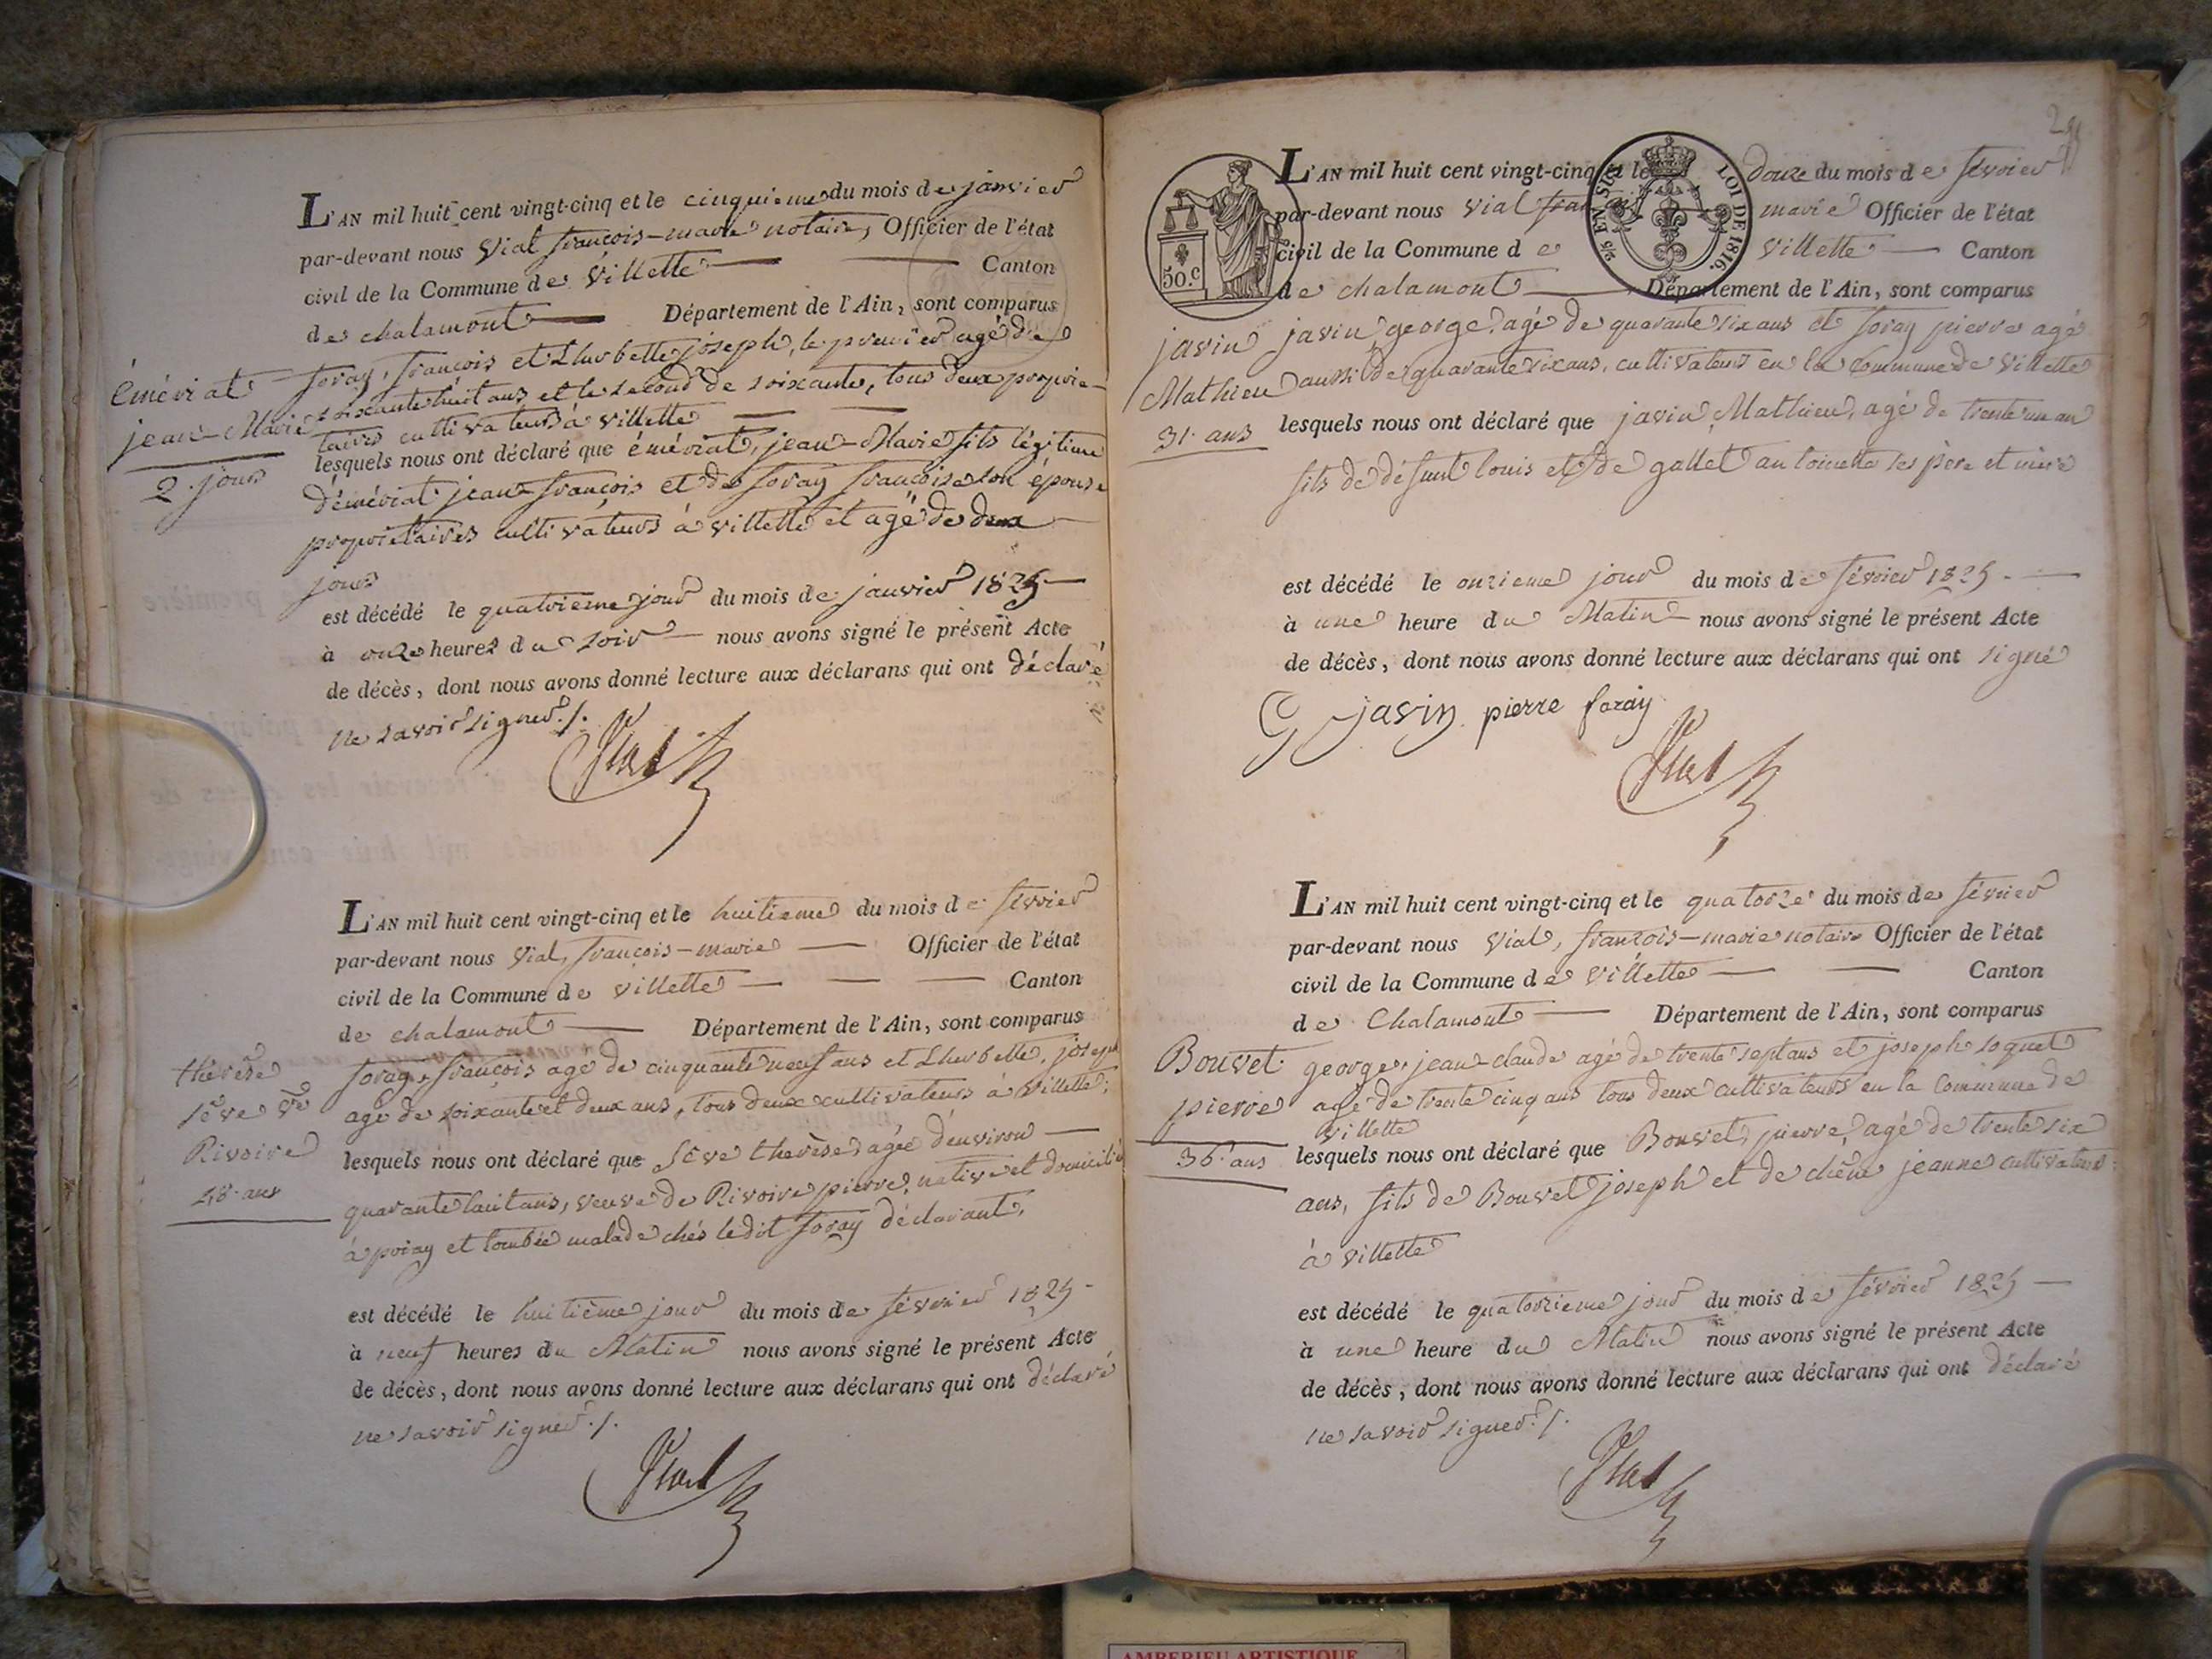 L'AN mil huit cent vingt-cinq et le cinquieme du mois de janvier
par-devant nous Vial françois-marie notaire, Officier de l'état
civil de la Commune de Villette Canton
de chalamont Département de l'Ain, sont comparus
émériat
jean-Marie
2. jours
foray, françois et Lhurbette joseph, le premier agé de
soixante huit ans et le second de soixante, tous deux proprié-
taires cultivateurs à villette
lesquels nous ont déclaré que émériat, jean-Marie fils légitime
d'émériat jean-françois et de foray françoise son épouse
propriétaires cultivateurs à villette et agé de deux
jours
est décédé le quatrieme jour du mois de janvier 1825
à onze heures du soir nous avons signé le présent Acte
de décès, dont nous avons donné lecture aux déclarans qui ont déclaré
ne savoir signer ./.
Vial
L'AN mil huit cent vingt-cinq et le huitieme du mois de février
par-devant nous Vial, françois-marie Officier de l'état
civil de la Commune de villette Canton
de chalamont Département de l'Ain, sont comparus
thérèse
séve vve
Rivoire
48. ans
foray, françois agé de cinquante neuf ans et Lhurbette, joseph
agé de soixante et deux ans, tous deux cultivateurs à Villette;
lesquels nous ont déclaré que séve thérèse agée d'environ
quarante huit ans, veuve de Rivoire pierre, native et domicilié
à priay et tombée malade chés ledit foray déclarant,
est décédé le huitième jour du mois de février 1825
à neuf heures du Matin nous avons signé le présent Acte
de décès, dont nous avons donné lecture aux déclarans qui ont déclaré
ne savoir signer ./.
Vial
L'AN mil huit cent vingt-cinq et le douze du mois de février
par-devant nous Vial françois marie Officier de l'état
civil de la Commune de villette Canton
de chalamont Département de l'Ain, sont comparus
50.c
25 EN SUS
LOI DE 1816.
javin
Mathieu
31. ans
javin, george, agé de quarante six ans et foray pierre agé
aussi de quarante six ans, cultivateurs en la commune de villette
lesquels nous ont déclaré que javin, Mathieu, agé de trente un an
fils de défunt louis et de gallet antoinette ses père et mère
est décédé le onzieme jour du mois de février 1825.
à une heure du Matin nous avons signé le présent Acte
de décès, dont nous avons donné lecture aux déclarans qui ont signé
G javin pierre foray
Vial
L'AN mil huit cent vingt-cinq et le quatorze du mois de février
par-devant nous Vial, françois-marie notaire Officier de l'état
civil de la Commune de Villette Canton
de Chalamont Département de l'Ain, sont comparus
Bouvet
pierre
36. ans
george, jean-claude agé de trente sept ans et joseph loquet
agé de trente cinq ans tous deux cultivateurs en la Commune de
villette
lesquels nous ont déclaré que Bouvet, pierre, agé de trente six
ans, fils de Bouvet joseph et de chêne jeanne cultivateurs
à villette
est décédé le quatorzieme jour du mois de février 1825
à une heure du Matin nous avons signé le présent Acte
de décès, dont nous avons donné lecture aux déclarans qui ont déclaré
ne savoir signer ./.
Vial
AMBERIEU ARTISTIQUE